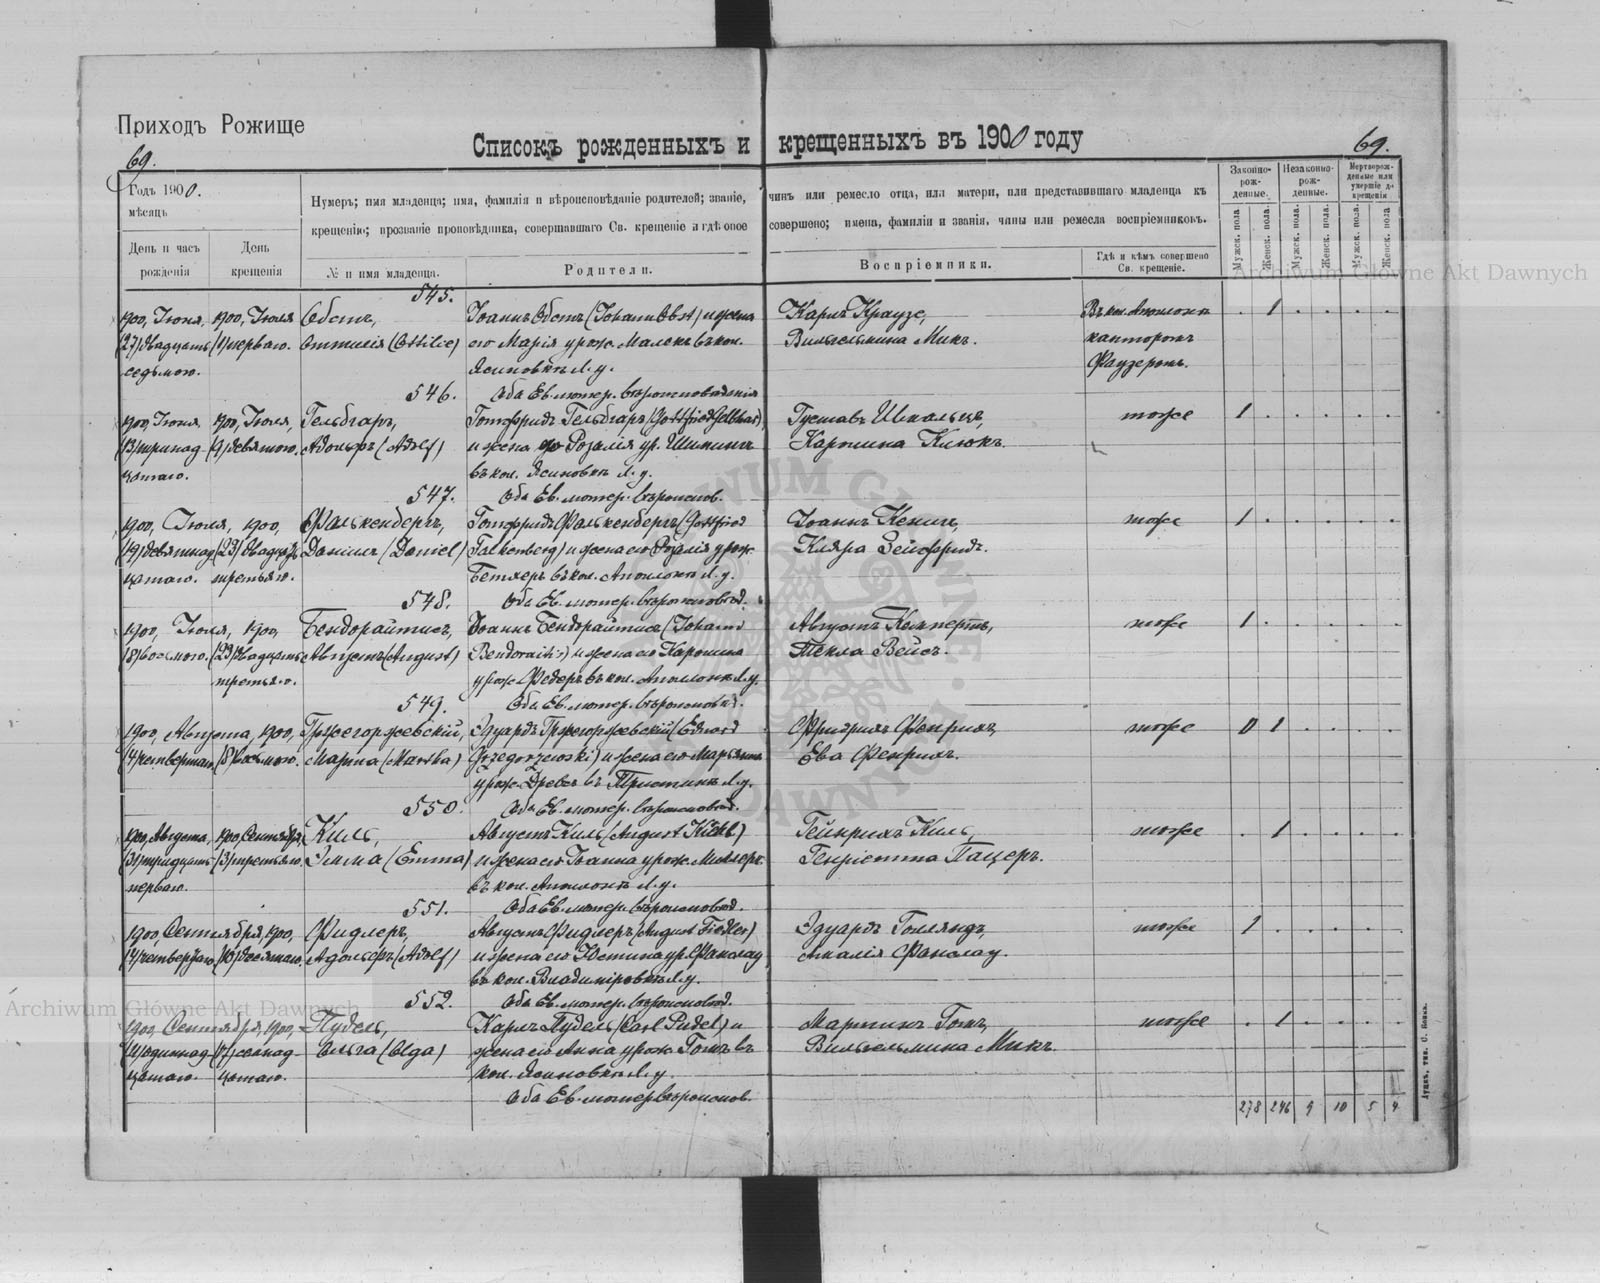 Приходъ Рожище
69.
Списокъ рожденныхъ и крещенныхъ въ 1900 году
69.
Годъ 1900.
мѣсяцъ
День и часъ рожденія
День крещенія
Нумеръ; имя младенца; имя, фамилія и вѣроисповѣданіе родителей; званіе, чинъ или ремесло отца, или матери, или представившаго младенца къ
крещенію; прозваніе проповѣдника, совершавшаго Св. крещеніе и гдѣ оное совершено; имена, фамиліи и званія, чины или ремесла воспріемниковъ.
№ и имя младенца.
Родители.
Воспріемники.
Гдѣ и кѣмъ совершено Св. крещеніе.
Законно-рож-денные.
Незаконно-рож-денные.
Мертворож-денные или умершіе до крещенія
Мужск. пола
Женск. пола.
Мужск. пола.
Женск. пола.
Мужск. пола.
Женск. пола
Archiwum Główne Akt Dawnych
545.
1900, Іюня, 1900, Іюля Обстъ, Іоаннъ Обстъ (Johann Obst) и жена Карлъ Краузе, Въ кол. Аполлонѣ . 1 . . . .
(27) двадцать (1) перваго. Оттилія (Ottilie) его Марія урож. Малекъ въ кол. Вильгельмина Микъ. канторомъ
седьмого. Ясиновкѣ Л. у. Фаузеромъ.
546. Оба Ев. лютер. вѣроисповѣданія
1900, Іюня 1900, Іюля, Гельбгаръ, Готфридъ Гельбгаръ (Gottfried Gelbhar) Густавъ Шмальцъ, тоже 1 . . . . .
(13) тринад- (9) девятого. Адольфъ (Adolf) и жена его Розалія ур. Каролина Клюкъ.
цатаго. въ кол. Ясиновкѣ Л. у.
547. Оба Ев. лютер. вѣроиспов.
1900, Іюля, 1900, Фалькенбергъ, Готфридъ Фалькенбергъ (Gottfried Іоаннъ Кенигъ, тоже 1 . . . . .
(19) девятнад (23) двадцать Даніилъ (Daniel) Falkenberg) и жена его Розалія урож. Клара Зейфридъ.
цатаго. третьяго. Бетхеръ въ кол. Аполлонѣ Л. у.
548. Оба Ев. лютер. вѣроисповѣд.
1900, Іюля, 1900, Бендорайтисъ, Іоаннъ Бендорайтисъ (Johann Августъ Кемпертъ, тоже 1 . . . . .
(8) восьмого. (23) двадцать Августъ (August) Bendoraitis) и жена его Каролина Текла Вейсъ.
третьяго. урож. Федеръ въ кол. Аполлонѣ Л. у.
549. Оба Ев. лютер. вѣроисповѣд.
1900, Августа, 1900, Гржегоржевскій, Эдуардъ Гржегоржевскій (Eduard Фридрихъ Фенрихъ, тоже 0 1 . . . .
(4) четвертаго (8) восьмого. Марта (Martha) Grzegorzewski) и жена его Марьянна Ева Фенрихъ.
урож. Древсъ въ Тристинѣ Л. у.
550. Оба Ев. лютер. вѣроисповѣд.
1900, Августа, 1900, Сентября, Киль, Августъ Киль (August Kiehl) Гейнрихъ Киль, тоже . 1 . . . .
(31) тридцать (3) третьяго. Эмма (Emma) и жена его Іоанна урож. Миллеръ Генріетта Пацеръ.
перваго. въ кол. Аполлонѣ Л. у.
551. Оба Ев. лютер. вѣроисповѣд.
1900, Сентября, 1900, Фидлеръ, Августъ Фидлеръ (August Fiedler) Эдуардъ Голландъ, тоже 1 . . . . .
(4) четвертаго (10) десятаго. Адольфъ (Adolf) и жена его Юстина ур. Фанслау Амалія Фанслау.
въ кол. Владиміровкѣ Л. у.
552. Оба Ев. лютер. вѣроисповѣд.
1900, Сентября, 1900, Пудель, Карлъ Пудель (Carl Pudel) и Мартинъ Готъ, тоже . 1 . . . .
(11) одиннад- (17) семнад- Ольга (Olga) жена его Анна урож. Готъ въ Вильгельмина Микъ.
цатаго. цатаго. кол. Ясиновкѣ Л. у.
Оба Ев. лютер. вѣроиспов.
278 246 9 10 5 4
Луцкъ, тип.
Archiwum Główne Akt Dawnych
ARCHIWUM GŁÓWNE AKT DAWNYCH